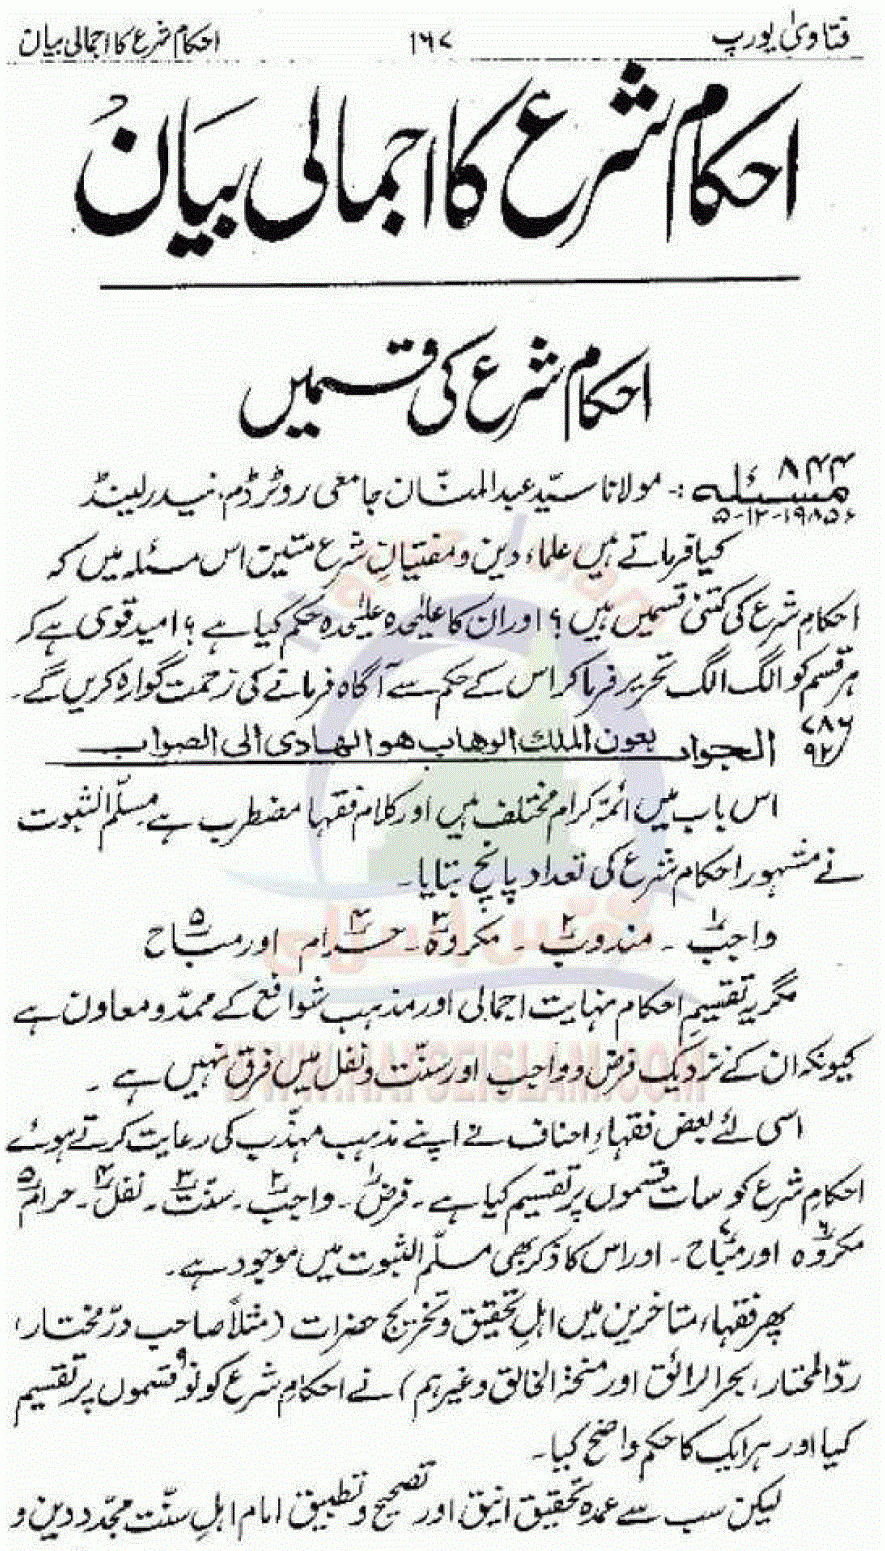 فتاویٰ یورپ ۱۶۷ احکام شرع کا اجمالی بیان
احکام شرع کا اجمالی بیان
احکام شرع کی قسمیں
مسئلہ ۸۴۴ :۔ مولانا سید عبدالمنّان جامعی روٹرڈم، نیدرلینڈ
۵-۱۲-۱۹۸۵ء
کیا فرماتے ہیں علماء دین و مفتیانِ شرع متیق اس مسئلہ میں کہ
احکامِ شرع کی کتنی قسمیں ہیں؟ اور ان کا علیٰحدہ علیٰحدہ حکم کیا ہے؟ امید قوی ہے کہ
ہر قسم کو الگ الگ تحریر فرما کر اس کے حکم سے آگاہ فرمانے کی زحمت گوارہ کریں گے۔
۷۸۶
۹۲ الجواب بعون الملک الوھاب ھو الھادی الی الصواب
اس باب میں ائمۂ کرام مختلف ہیں اور کلام فقہا مضطرب ہے مسلّم الثبوت
نے مشہور احکام شرع کی تعداد پانچ بتایا۔
واجب۱۔ مندوب۲۔ مکروہ۳۔ حرام۴ اور مباح۵
مگر یہ تقسیمِ احکام نہایت اجمالی اور مذہب شوافع کے ممدو معاون ہے
کیونکہ ان کے نزدیک فرض و واجب اور سنّت و نفل میں فرق نہیں ہے۔
اسی لئے بعض فقہاءِ احناف نے اپنے مذہب مہذّب کی رعایت کرتے ہوئے
احکامِ شرع کو سات قسموں پر تقسیم کیا ہے۔ فرض۱۔ واجب۲۔ سنّت۳۔ نفل۴۔ حرام۵
مکروہ۶ اور مباح۷۔ اور اس کا ذکر بھی مسلّم الثبوت میں موجود ہے۔
پھر فقہاء متاخرین میں اہلِ تحقیق و تخریج حضرات (مثلاً صاحب درّمختار،
ردّالمحتار، بحرالرائق اور منحۃ الخالق وغیرہم) نے احکامِ شرع کو نو۹ قسموں پر تقسیم
کیا اور ہر ایک کا حکم واضح کیا۔
لیکن سب سے عمدہ تحقیق انیق اور تصحیح و تطبیق امام اہلِ سنّت مجّدد دین و
WWW.NAFSEISLAM.COM